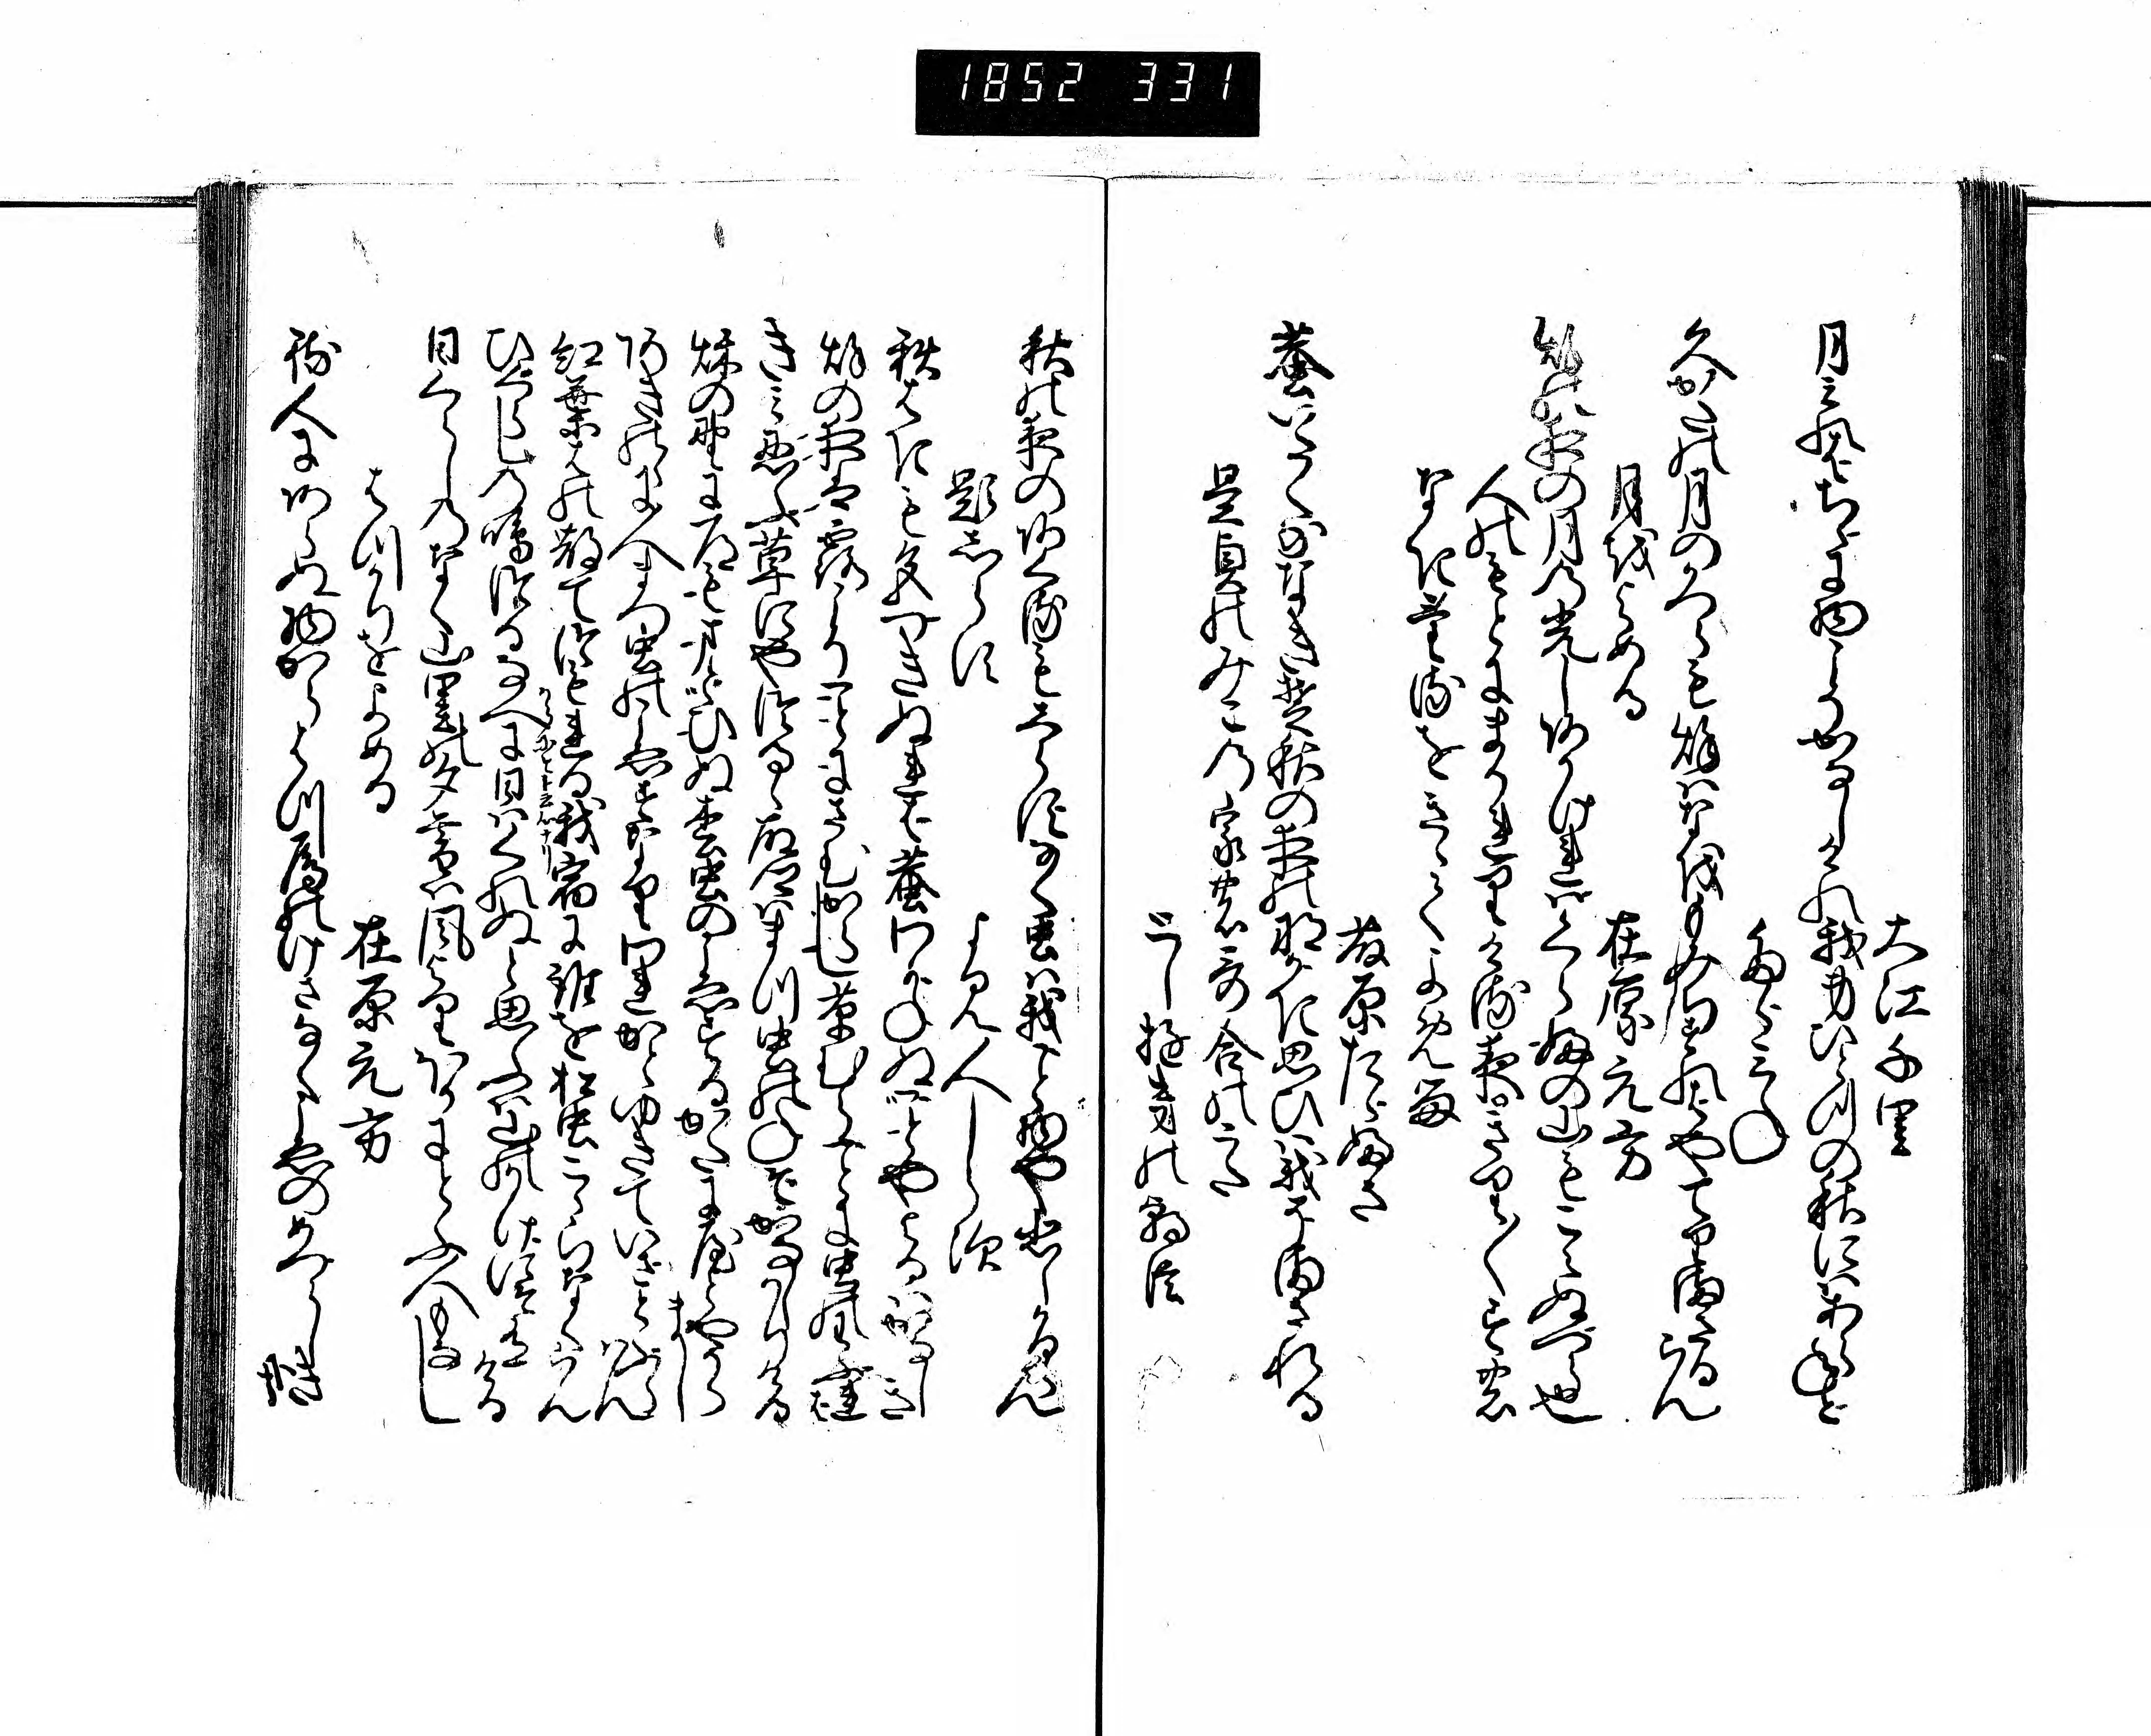 1852 331
大江千里
月みれはちゝに物こそかなしけれ我身ひとつの秋にはあらねと
たゝみね
久かたの月のかつらも秋はなをもみちすれはやてりまさるらん
月をよめる
在原元方
秋の夜の月の光しあかけれはくらふの山もこえぬへら也
人のもとにまかれりける夜きり〳〵すの
なきけるをきゝてよめる
藤原たゝふさ
蛬いたくななきそ秋の夜の那かき思ひは我そまされる
是貞のみこの家の哥合のうた
としゆきの朝臣
秋の夜のあくるもしらすなく虫は我こと物や悲しかるらん
題しらす
よみ人しらす
秋はきも色つきぬれは蛬わかねぬことやよるはかなしき
秋の夜は露こそことにさむからし草むらことに虫のわふれは
きみ忍ふ草にやつるゝ故郷はまつ虫のねそかなしかりける
秋の野に道もまとひぬ松虫のこゑするかたに宿やからまし
あきの野に人まつ虫のこゑすなり我かとゆきていさとふらはん
紅葉はの散てつもれる我宿に誰を松虫こゝらなくらん
ひくらしの鳴つるなへに日はくれぬと思ふは山の陰にそ有ける
日くらしのなく山里の夕暮は風よりほかにとふ人もなし
はつかりをよめる
在原元方
待人にあらぬ物からはつ雁のけさなくこゑのめつらしき哉